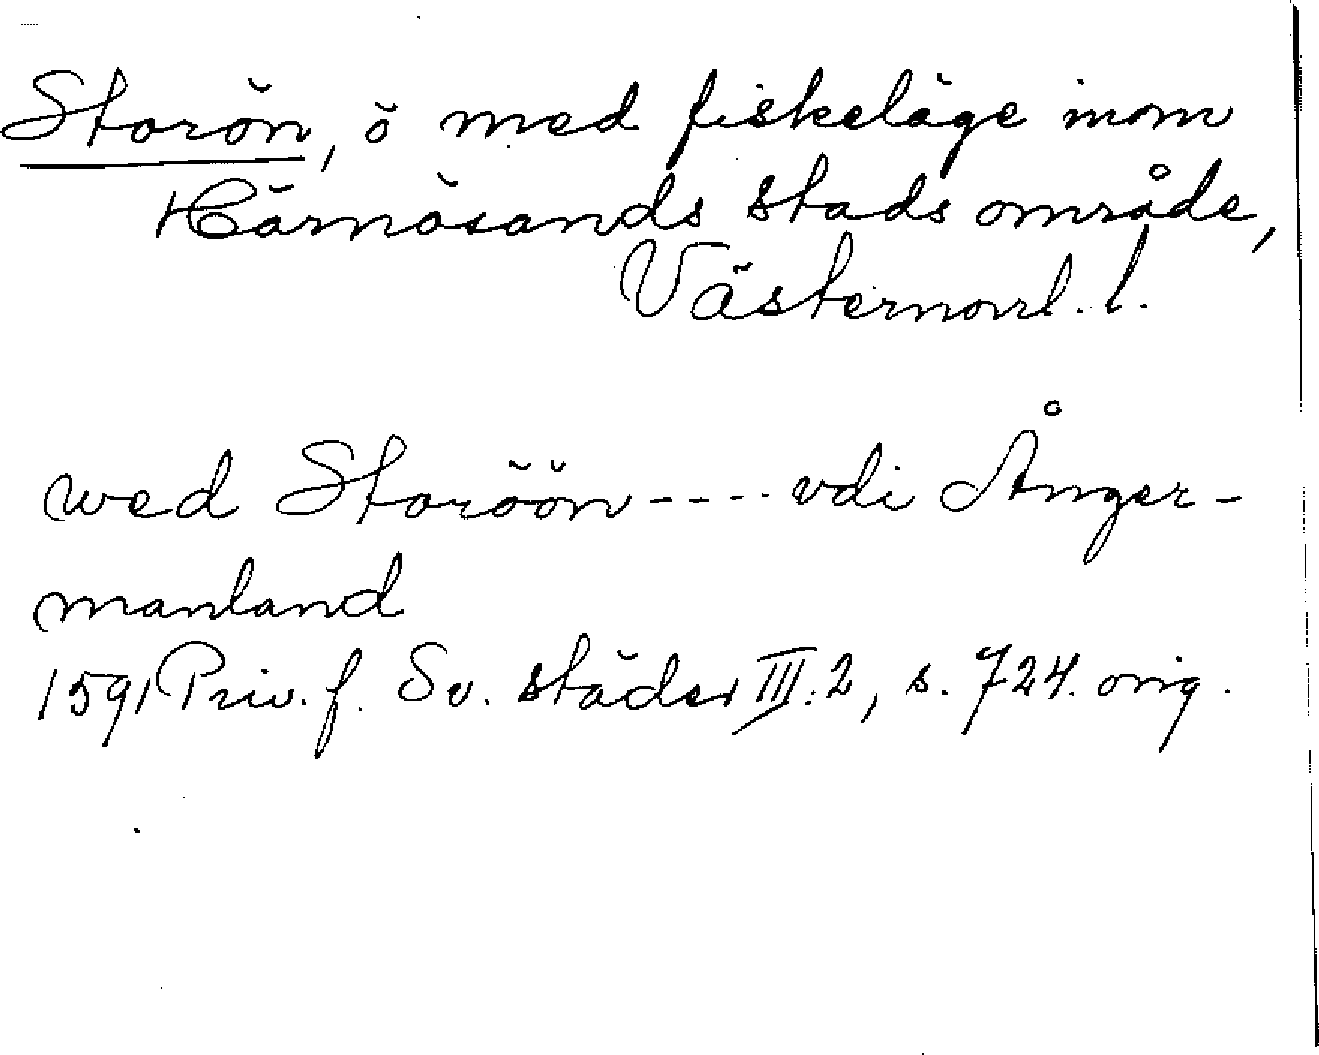 Storön, ö med fiskeläge inom
Härnösands stads område,
Västernorrl. l.
wed Storöön ---- vdi Ånger-
manland
1591 Priv. f. Sv. städer III:2, s. 724. orig.